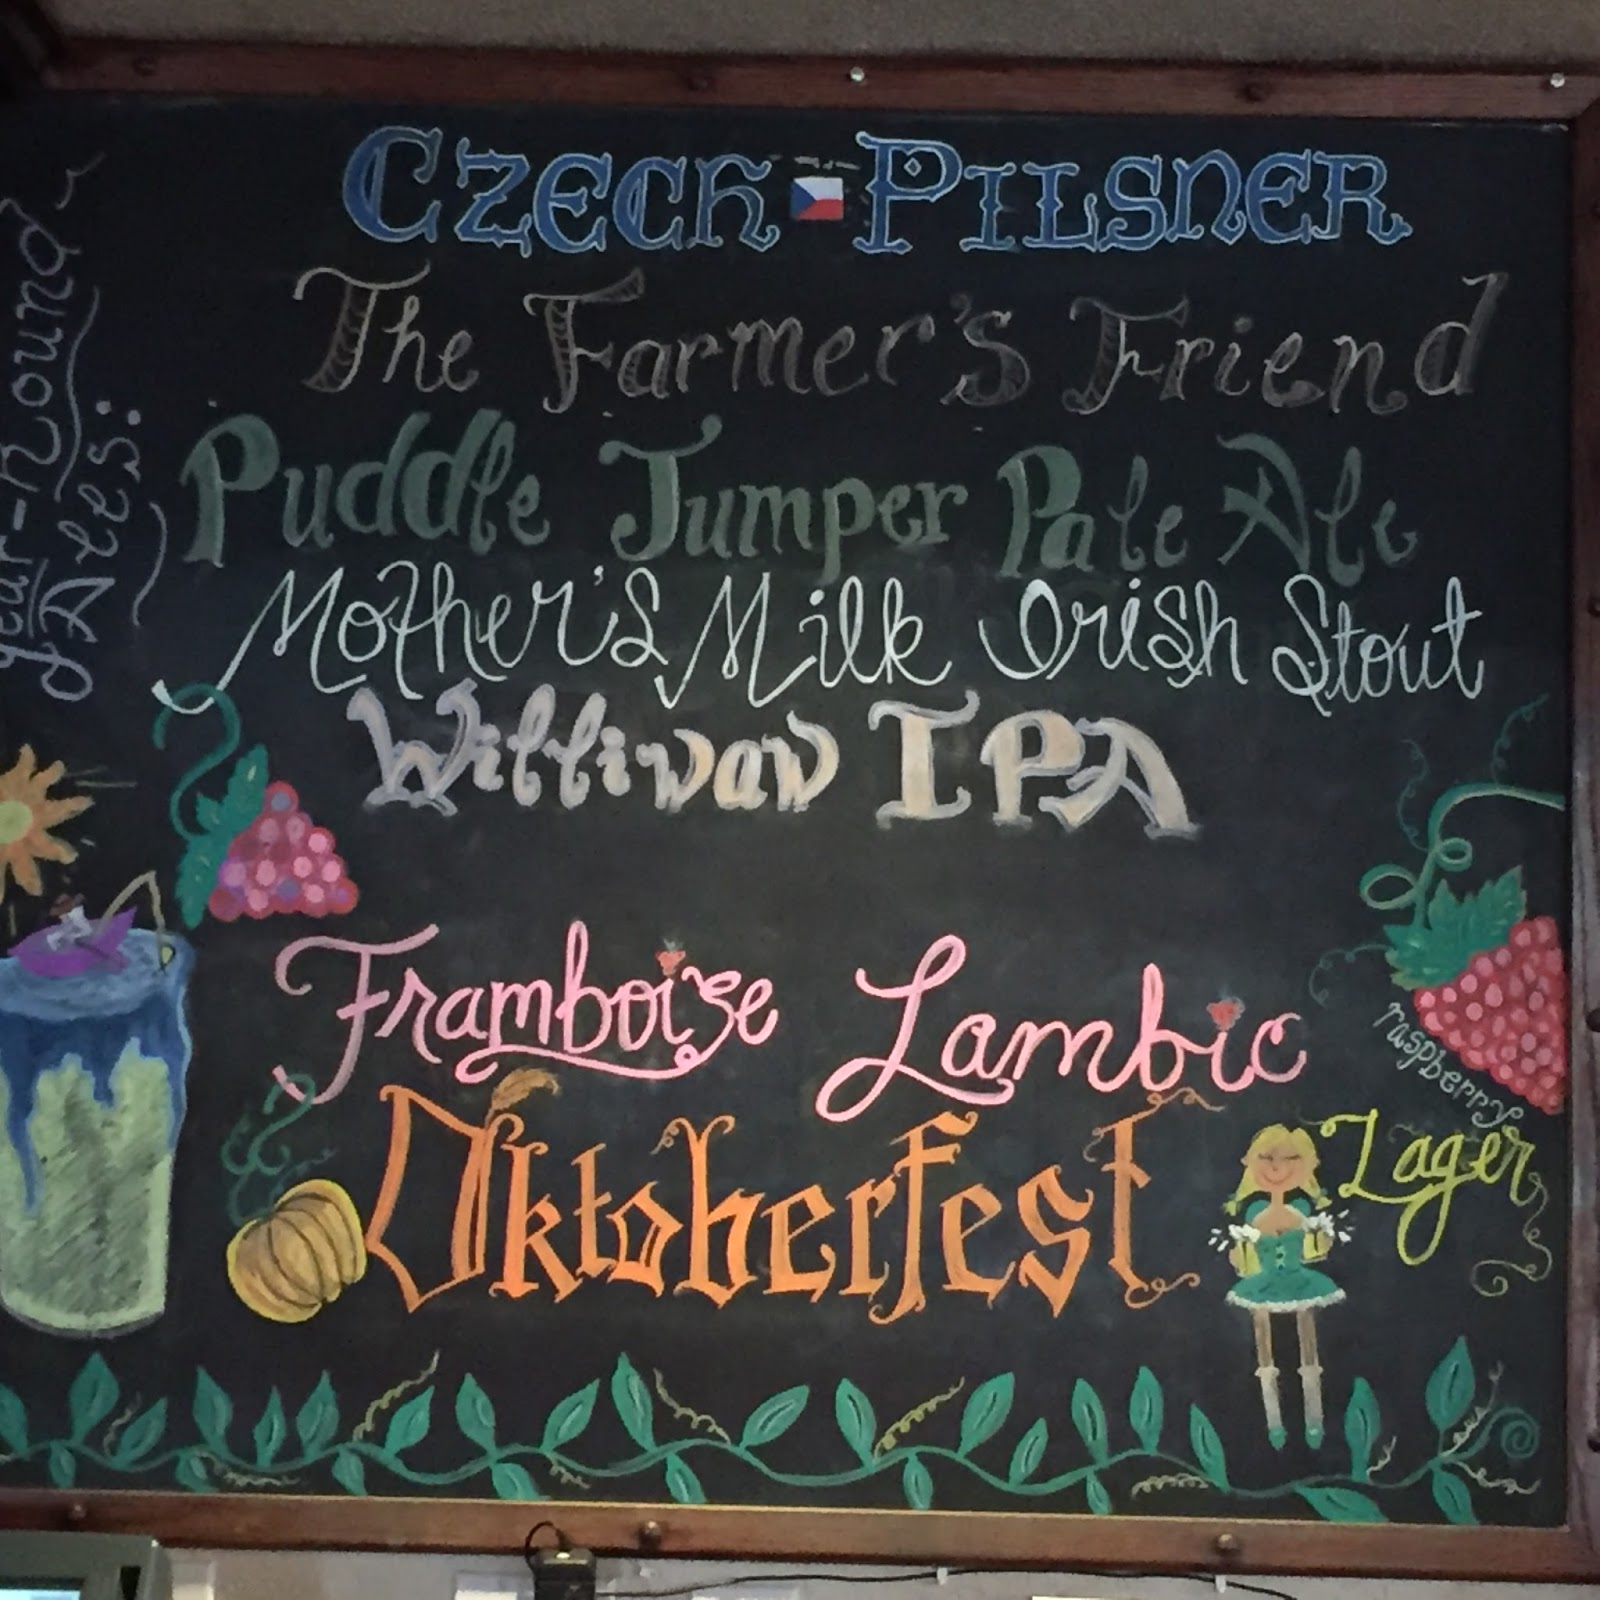 Year-Round
Ales:
CZECH PILSNER
The Farmer's Friend
Puddle Jumper Pale Ale
Mother's Milk Irish Stout
Williwaw IPA
Framboise Lambic
raspberry
Oktoberfest Lager